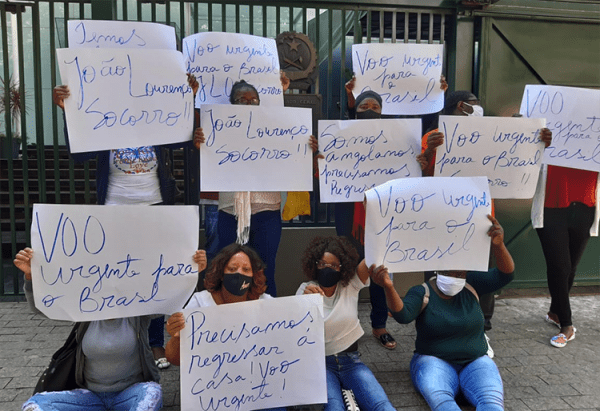 Temos
João
Lourenço
Socorro!!
VOO Urgente
para o Brasil
João Lourenço
Socorro!!
VOO Urgente
para o
Brasil
Somos
angolanos
precisamos
Regressar
VOO Urgente
para o Brasil
Socorro!!
VOO
para
Brasil
VOO
urgente para
o Brasil
VOO Urgente
para o
Brasil
Precisamos
regressar à
casa! Voo
urgente!